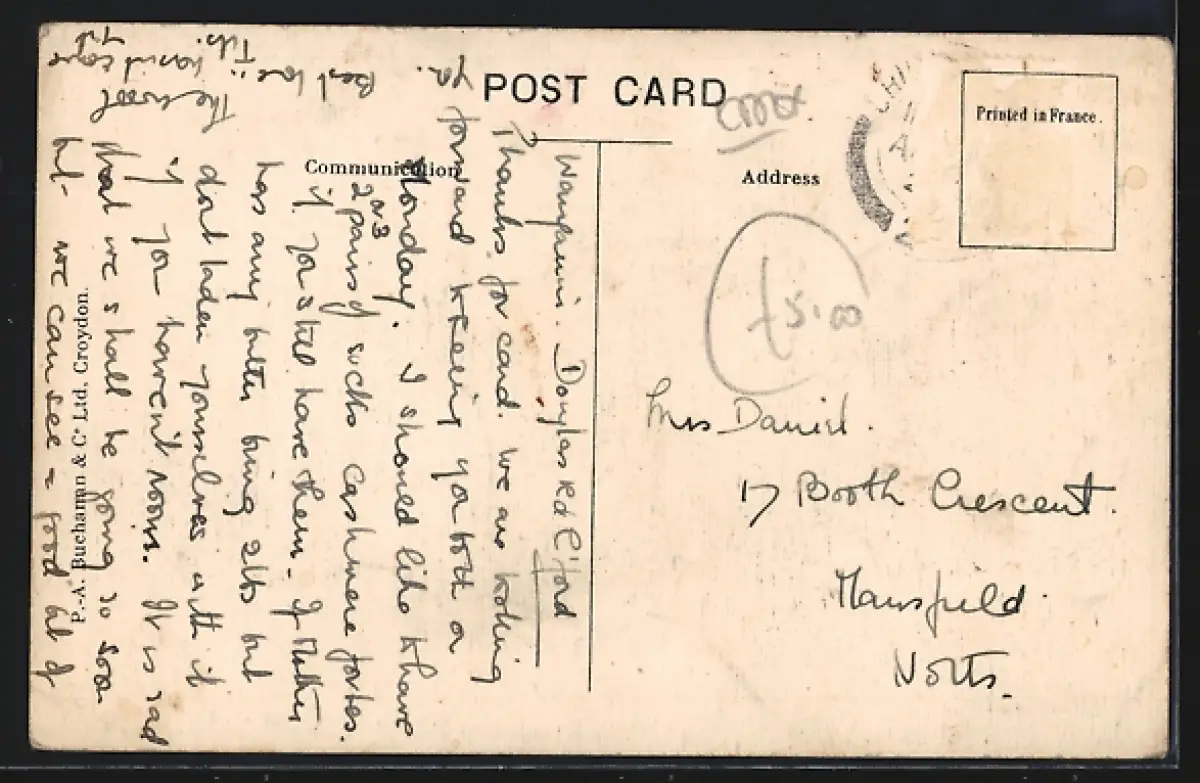 POST CARD
Communication
Address
Printed in France.
P.-A. Buchanan & Co Ltd, Croydon.
£5.00
Mrs Daniel.
17 Booth Crescent.
Mansfield
Notts.
Douglas Rd
Thanks for card. We are looking
forward to seeing you both on
Monday. I should like to have
2 or 3 pairs of socks cashmere for
if you still have them. If Mother
has any butter bring 2lbs but
don't laden yourselves with it
if you haven't room. It is sad
that we shall be going so soon
but we can see a good bit of
ya.
Best love
Tils.
The wool
hasn't come
yet